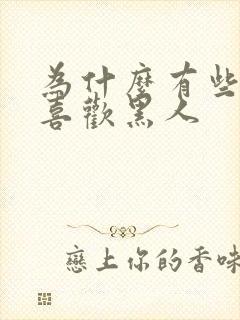 為什麼有些
喜歡黑人
戀上你的香味